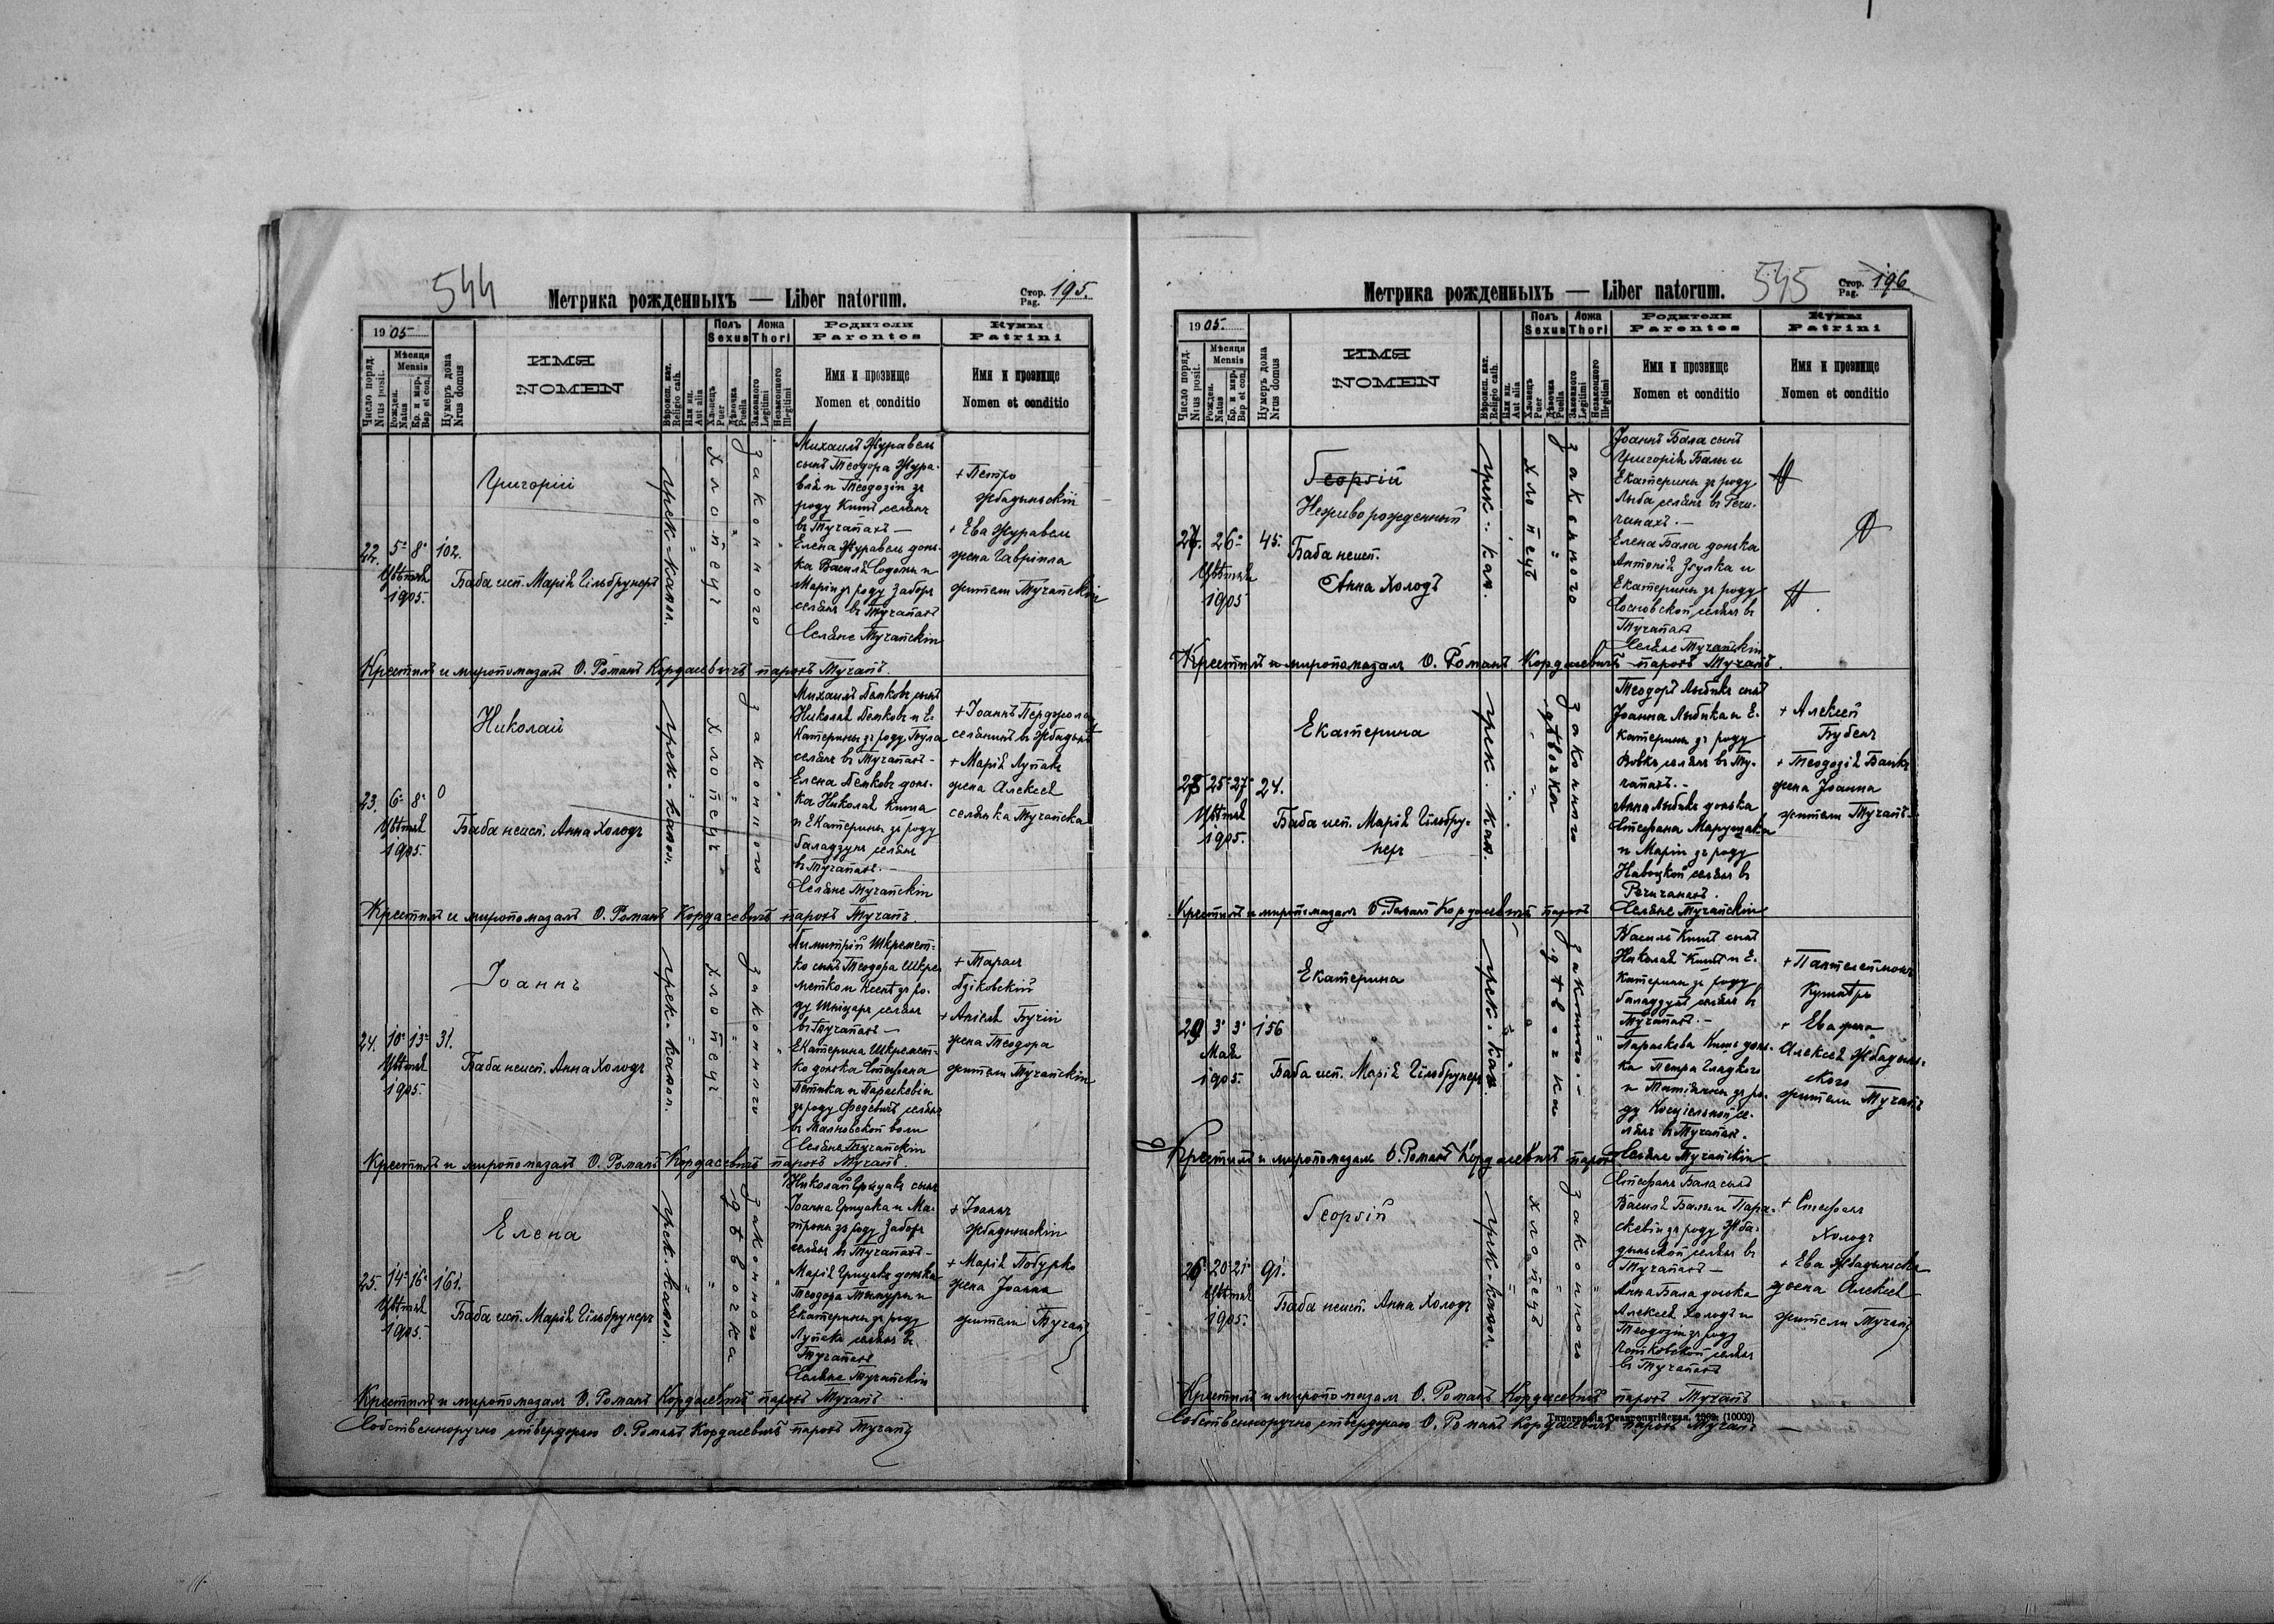 544
Метрика рожденныхъ — Liber natorum.
Стор. Pag. 195.
1905
Число поряд. Nrus posit.
Мѣсяця Mensis
Рожден. Natus
Кр. и мир. Bap et con.
Нумеръ дома Nrus domus
ИМЯ
NOMEN
Вѣроисп. кат. Religio cath.
Или ин. Aut alia
Полъ Sexus
Хлопецъ Puer
Дѣвочка Puella
Ложа Thori
Законного Legitimi
Незаконного Illegitimi
Родители
Parentes
Имя и прозвище
Nomen et conditio
Кумы
Patrini
Имя и прозвище
Nomen et conditio
22. 5. 8. 102.
Цвѣтня
1905.
Григорій
Баба исп. Марія Гільбрунеръ
грек.-катол.
хлопецъ
законного
Михаилъ Журавель
сынъ Теодора Жура-
вля и Теодозіи зъ
роду Кишъ селянъ
въ Тучапахъ —
Елена Журавель донь-
ка Василя
Маріи зъ роду Заборъ
селянъ въ Тучапахъ
Селяне Тучапскіи
+ Петро
Жбадыньскій
+ Ева Журавель
жена Гавріила
жители Тучапскіи
Крестилъ и миропомазалъ О. Романъ Кордасевичъ парохъ Тучапъ.
23. 6. 8. 0
Цвѣтня
1905.
Николай
Баба неисп. Анна Холодъ
грек.-катол.
хлопецъ
законного
Михаилъ Демковъ сынъ
Николая Демковъ и Е-
катерины зъ роду
селянъ въ Тучапахъ -
Елена Демковъ донь-
ка Николая Киша
и Екатерины зъ роду
Баладзунъ селянъ
въ Тучапахъ. —
Селяне Тучапскіи
+ Іоаннъ
селянинъ въ
+ Марія Лупакъ
жена Алексея
селянка Тучапска
Крестилъ и миропомазалъ О. Романъ Кордасевичъ парохъ Тучапъ.
24. 10. 13. 31.
Цвѣтня
1905.
Іоаннъ
Баба неисп. Анна Холодъ
грек.-катол.
хлопецъ
законного
Димитрій Шкремет-
ко сынъ Теодора Шкре-
метко и Ксенѣ зъ ро-
ду селянъ
въ Тучапахъ —
Екатерина Шкремет-
ко донька Стефана
и Параскевіи
зъ роду Федевичъ селянъ
въ Малковской воли
Селяне Тучапскіи
+ Тарасъ
Дзіковскій
+ Анеля Бучій
жена Теодора
жители Тучапскіи
Крестилъ и миропомазалъ О. Романъ Кордасевичъ парохъ Тучапъ.
25. 14. 16. 161.
Цвѣтня
1905.
Елена
Баба исп. Марія Гільбрунеръ
грек.-катол.
дѣвочка
законного
Николай Грицакъ сынъ
Іоанна Грицака и Ма-
троны зъ роду Заборъ
селянъ въ Тучапахъ —
Марія Грицакъ донька
Теодора и
Екатерины зъ роду
Лупакъ селянъ въ
Тучапахъ
Селяне Тучапскіи
+ Іоаннъ
Жбадыньскій
+ Марія Побурко
жена Іоанна
жители Тучапъ
Крестилъ и миропомазалъ О. Романъ Кордасевичъ парохъ Тучапъ
Собственноручно ствердорно О. Романъ Кордасевичъ парохъ Тучапъ
545
Метрика рожденныхъ — Liber natorum.
Стор. Pag. 196
1905.
Число поряд. Nrus posit.
Мѣсяця Mensis
Рожден. Natus
Кр. и мир. Bap et con.
Нумеръ дома Nrus domus
ИМЯ
NOMEN
Вѣроисп. кат. Religio cath.
Или ин. Aut alia
Полъ Sexus
Хлопецъ Puer
Дѣвочка Puella
Ложа Thori
Законного Legitimi
Незаконного Illegitimi
Родители
Parentes
Имя и прозвище
Nomen et conditio
Кумы
Patrini
Имя и прозвище
Nomen et conditio
27. 26. 45.
Цвѣтня
1905
Георгій
Неживорожденный
Баба неисп.
Анна Холодъ
грек. кат.
хлопецъ
законного
Іоаннъ Бала сынъ
Григорія Балы и
Екатерины зъ роду
Лыба селянъ въ Речи-
чанахъ. —
Елена Бала донька
Антонія Згулка и
Екатерины зъ роду
Сосновской селянъ въ
Тучапахъ
Селяне Тучапскіи
Крестилъ и миропомазалъ О. Романъ Кордасевичъ парохъ Тучапъ.
28 25 27 24.
Цвѣтня
1905.
Екатерина
Баба исп. Марія Гільбру-
неръ
грек. кат.
дѣвочка
законного
Теодоръ Лыбикъ сынъ
Іоанна Лыбика и Е-
катерины зъ роду
Вовкъ селянъ въ Ту-
чапахъ. -
Анна Лыбикъ донька
Стефана Марущака
и Маріи зъ роду
Навоцкой селянъ въ
Речичанахъ.
Селяне Тучапскіи
+ Алексей
Бубенъ
+ Теодозія
жена Іоанна
жители Тучапъ.
Крестилъ и миропомазалъ О. Романъ Кордасевичъ парохъ
29 3. 3. 156
Мая
1905.
Екатерина
Баба исп. Марія Гільбрунеръ
грек. кат.
дѣвочка
законного. -
Василь Кишъ сынъ
Николая Кишъ и Е-
катерины зъ роду
Баладзунъ селянъ въ
Тучапахъ. —
Параскева Кишъ донь-
ка Петра Гладкого
и Татіанны зъ ро-
ду Косціельной се-
лянъ въ Тучапахъ.
Селяне Тучапскіи
+ Пантелеймонъ
Кушнѣръ
+ Ева жена
Алексея Жбадынь-
ского
жители Тучапъ
Крестилъ и миропомазалъ О. Романъ Кордасевичъ парохъ
26 20 21 91.
Цвѣтня
1905.
Георгій
Баба неисп. Анна Холодъ
грек.-катол.
хлопецъ
законного
Стефанъ Бала сынъ
Василя Балы и Пара-
скевіи зъ роду Жба-
дыньской селянъ въ
Тучапахъ —
Анна Бала донька
Алексея Холодъ и
Теодозіи зъ роду
селянъ
въ Тучапахъ
+ Стефанъ
Холодъ
+ Ева Жбадыньска
жена Алексея
жители Тучапъ
Крестилъ и миропомазалъ О. Романъ Кордасевичъ парохъ Тучапъ
Собственноручно ствердорно О. Романъ Кордасевичъ парохъ Тучапъ —